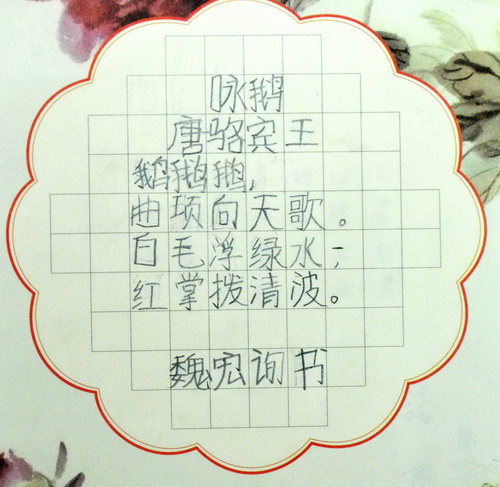 咏鹅
唐骆宾王
鹅鹅鹅,
曲项向天歌。
白毛浮绿水;
红掌拨清波。
魏宏询书